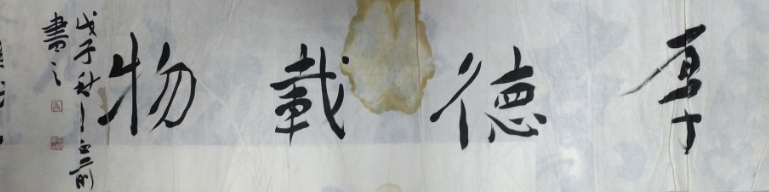 厚德載物
戊子秋
書之